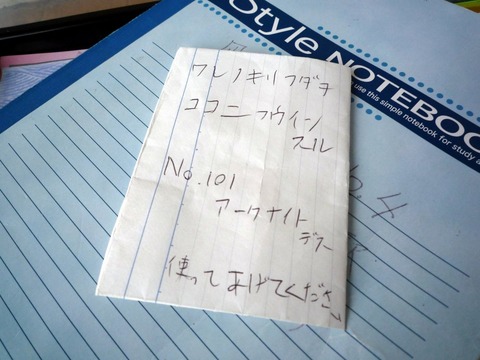 Style NOTEBOOK
use this simple notebook for study a
ワレノキリフダヲ
ココニフウインスル
No.101
アークナイト
デス
使ってあげてください